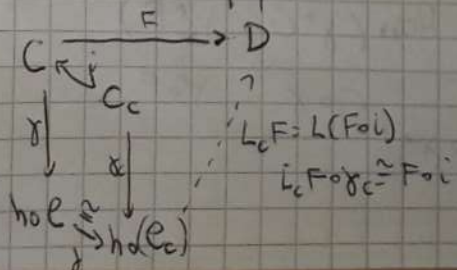 F
C → D
i
C_c
γ
γ
L_cF = L(F∘i)
i_cF∘γ_c ≅ F∘i
hoC ≅ ho(C_c)